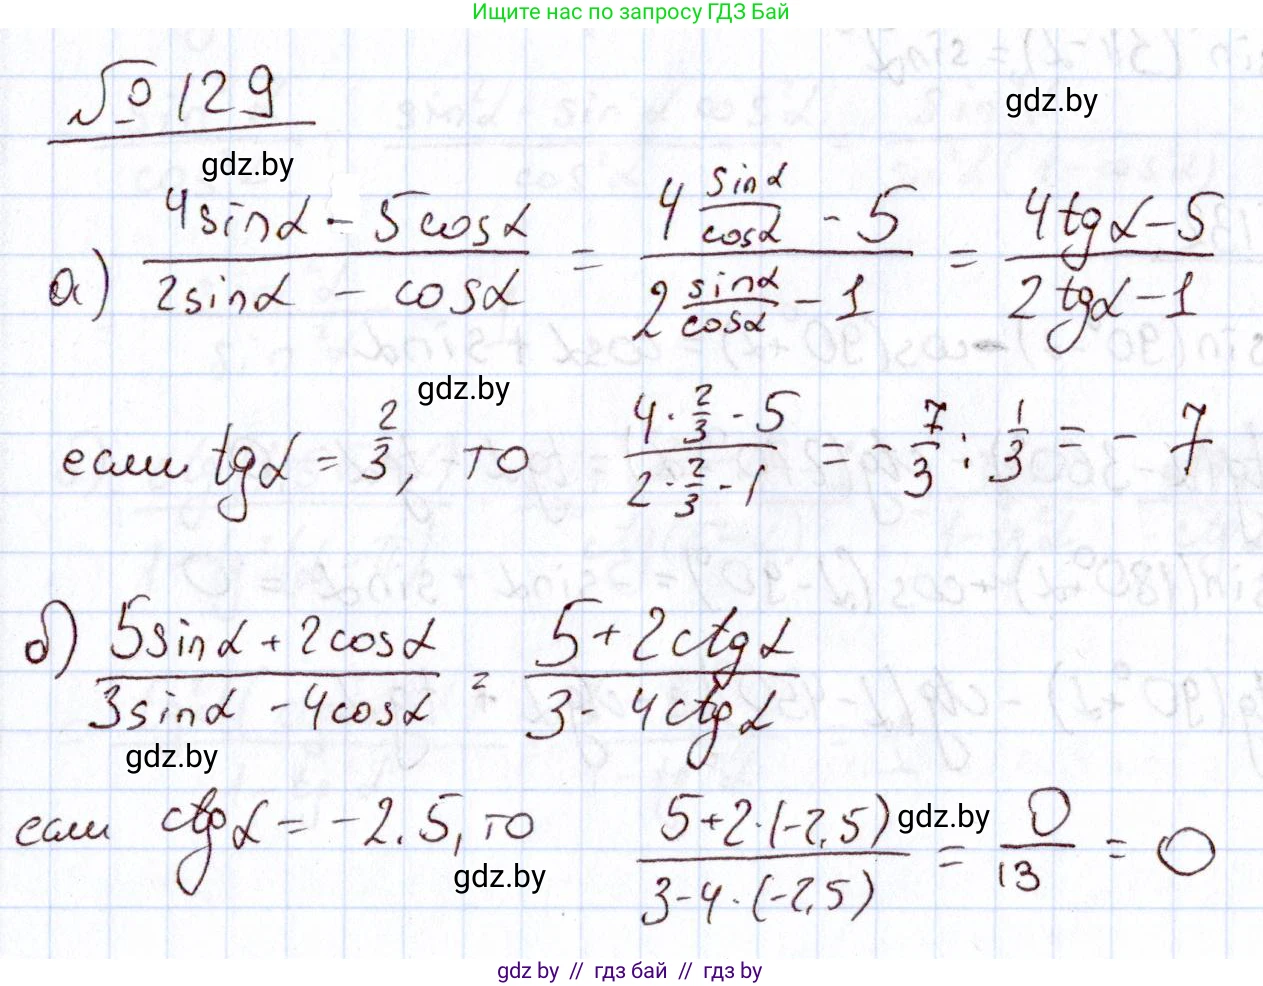 Ищите нас по запросу ГДЗ Бай
№ 129
gdz.by
gdz.by
а) (4sinα - 5cosα)/(2sinα - cosα) = (4 sinα/cosα - 5)/(2 sinα/cosα - 1) = (4tgα - 5)/(2tgα - 1)
gdz.by
если tgα = 2/3, то (4·2/3 - 5)/(2·2/3 - 1) = - 7/3 : 1/3 = - 7
б) (5sinα + 2cosα)/(3sinα - 4cosα) = (5 + 2ctgα)/(3 - 4ctgα)
gdz.by
если ctgα = -2.5, то (5+2·(-2,5))/(3-4·(-2,5)) = 0/13 = 0
gdz.by
gdz.by
gdz.by // гдз бай // гдз by